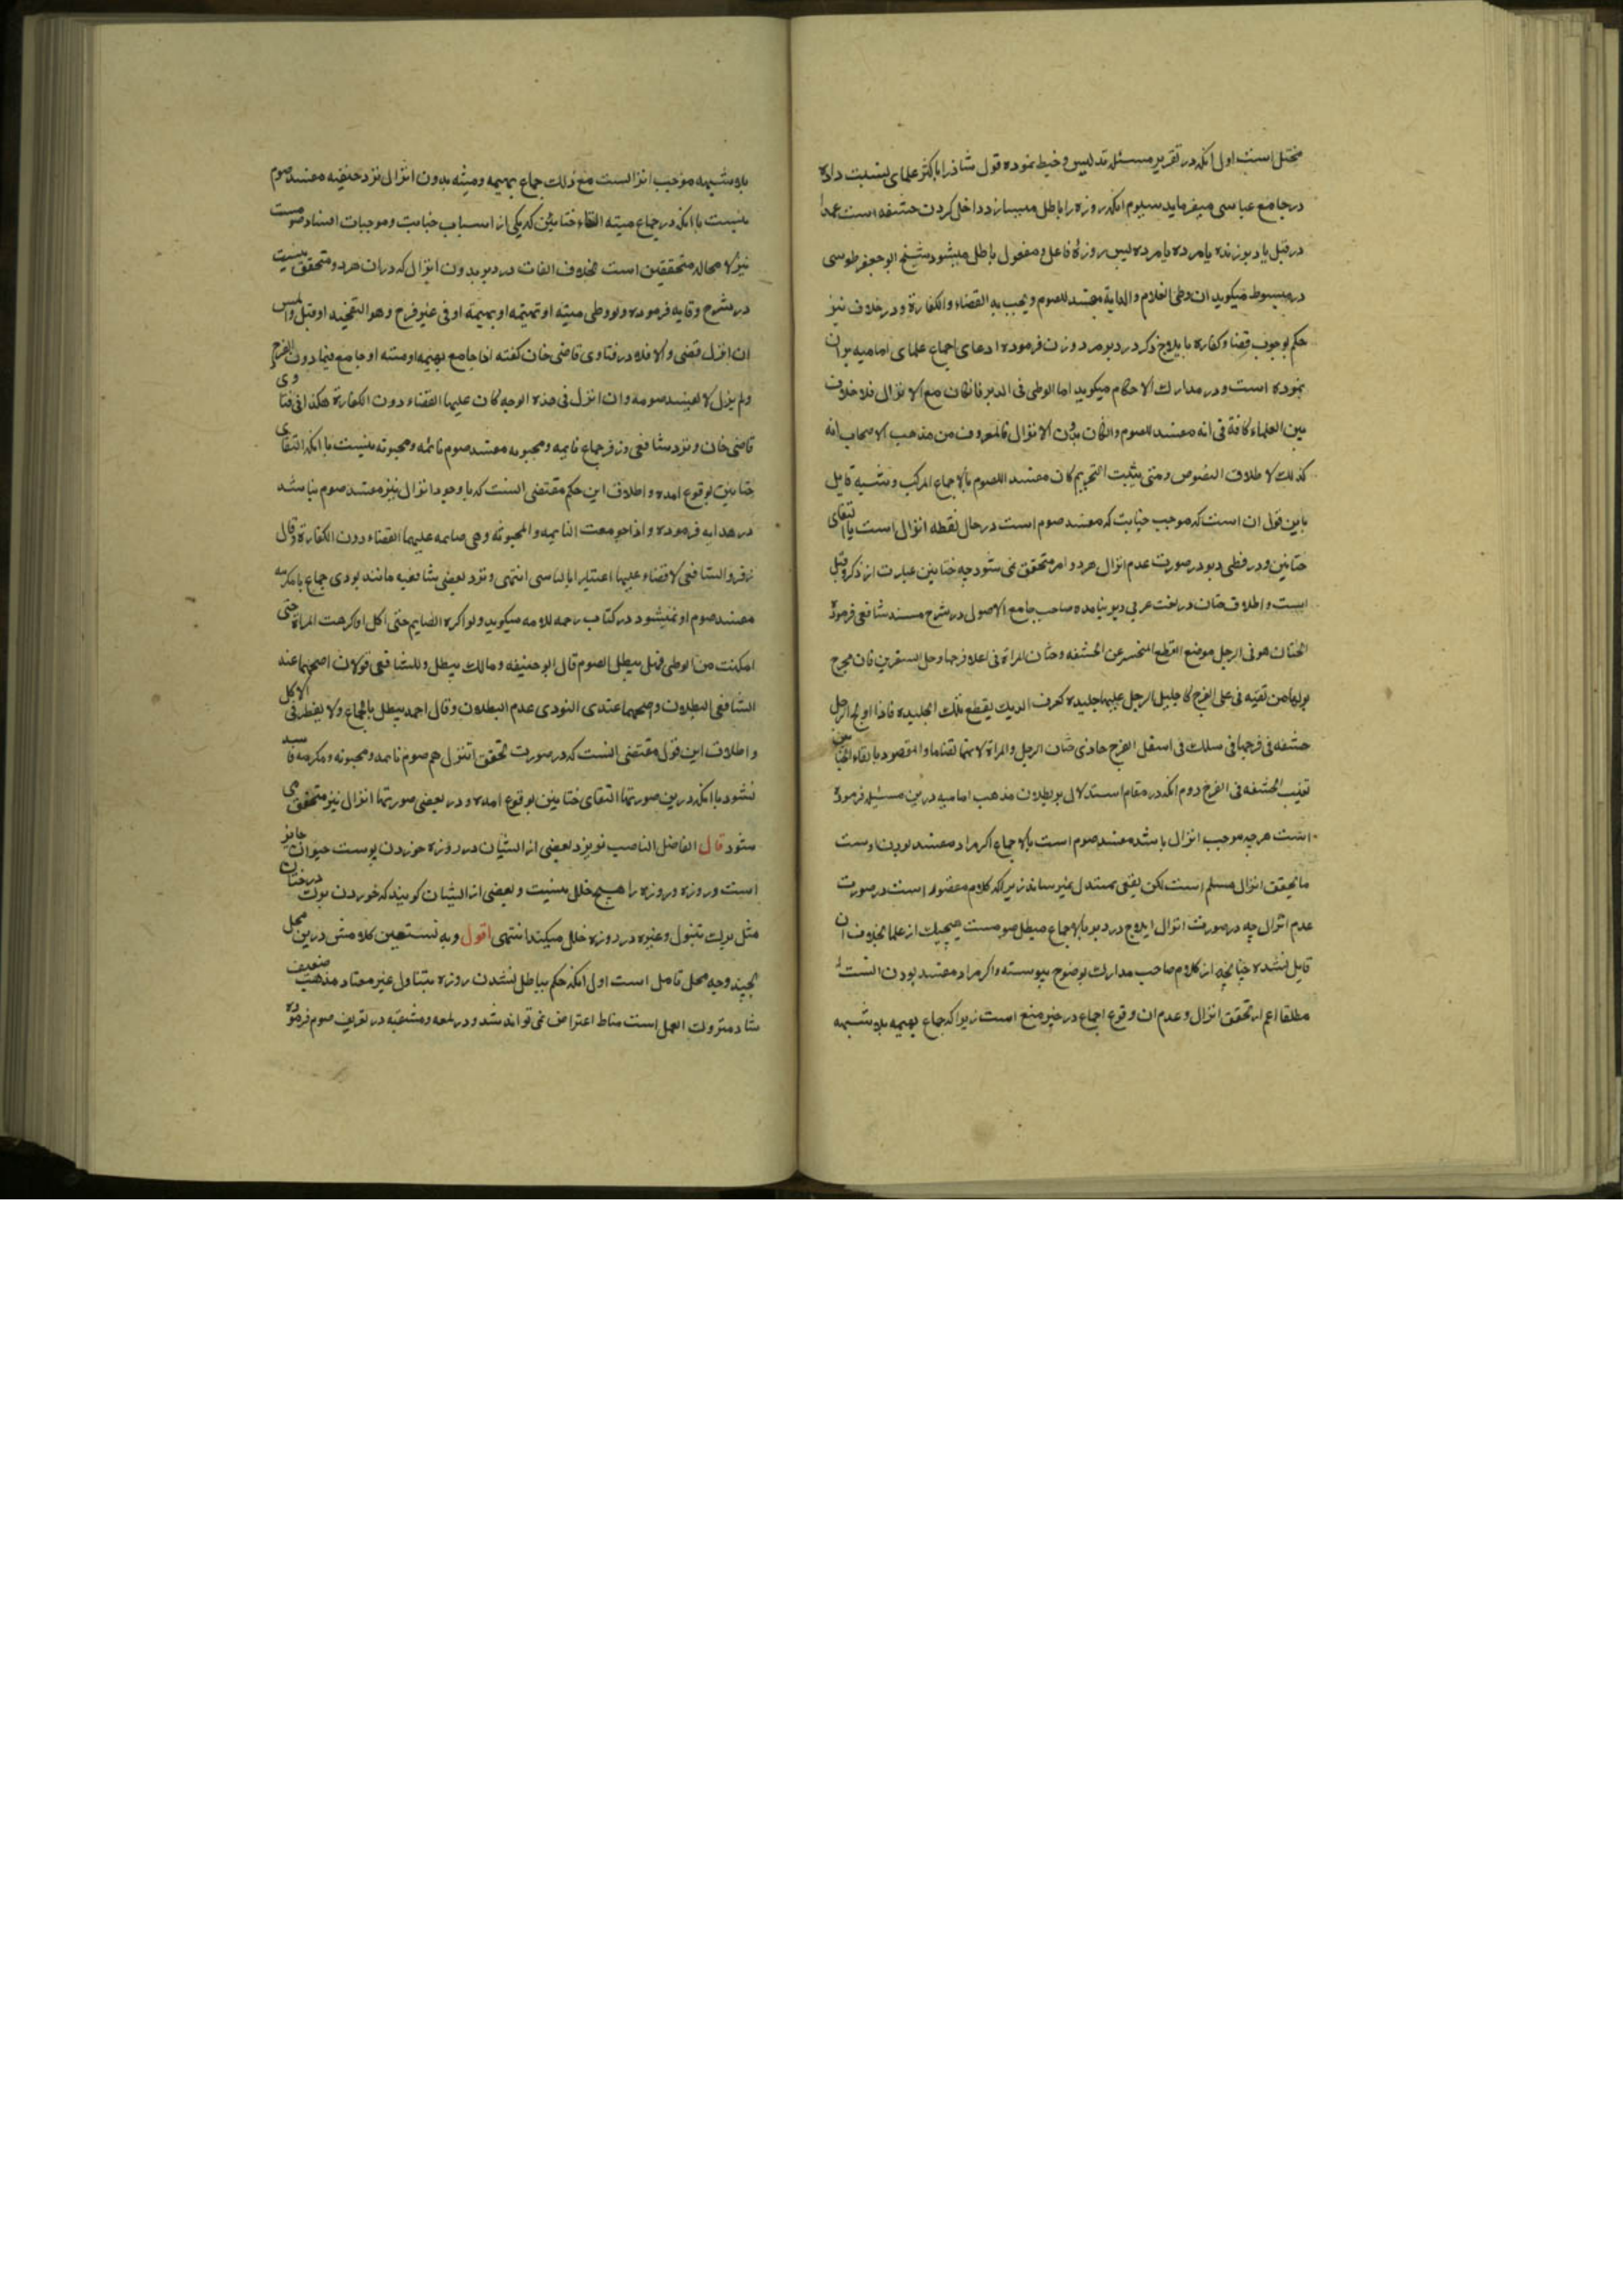 مختل است اول انکه در تقریر مسئله تدلیس و خبط نموده قول شاذ را باکثر علمای نسبت داده
در جامع عباسی میفرماید سیوم انکه روزه را باطل میسازد داخل کردن حشفه است عمدا
در قبل یا دبر زنده یا مرده یا مرده پس روزهٔ فاعل و مفعول باطل میشود شیخ ابو جعفر طوسی
در مبسوط میکوید ان وطی الغلام و الدابة مفسد للصوم و یجب به القضاء و الکفارة و در خلاف نیز
حکم بوجوب قضا و کفاره بایلاج ذکر در دبر مرد و زن فرموده ادعای اجماع علمای امامیه بران
نموده است و در مدارک الاحکام میکوید اما الوطی فی الدبر فان کان مع الانزال فلا خلاف
بین العلماء کافة فی انه مفسد للصوم و ان کان بدون الانزال فالمعروف من مذهب الاصحاب انه
کذلک لاطلاق النصوص و متی یثبت التحریم کان مفسد اللصوم بالاجماع المرکب و شبیه قایل
باین قول ان است که موجب جنابت که مفسد صوم است در حال نقطه انزال است یا التقای
ختانین و در وطی دبر در صورت عدم انزال هر دو امر متحقق نمی شود چه ختانین عبارت از ذکر و قبل
است و اطلاق ختان در لغت عربی دبر نیامده صاحب جامع الاصول در شرح مسند شافعی فرموده
الختان هو فی الرجل موضع القطع المنحسر عن الحشفه و ختان المراة فی اعلا فرجها و حل السقرین فان مخرج
بولها من ثقبه فی علی الفرج کا حلیل الرجل علیها جلیده کعرف الدیک یقطع تلک الجلیده فاذا اولج الرجل
حشفه فی فرجها فی سلک فی اسفل الفرج حاذی ختان الرجل و المراة لانهما لقتاما و المقصود بالتقاء الختانین
تغیب الحشفه فی الفرج دوم انکه در مقام استدلال بر بطلان مذهب امامیه درین مسئله فرموده
است هر چه موجب انزال باشد مفسد صوم است بالاجماع اکر مراد مفسد بودن اوست
ما تحقق انزال مسلم است لکن نفعی بمستدل نمیرساند زیرا که کلام مقصور است در صورت
عدم انزال چه در صورت انزال ایلاج در دبر بالاجماع مبطل صومست هیچیک از علما بخلاف ان
قایل نشده چنانچه از کلام صاحب مدارک بوضوح پیوسته و اکر مراد مفسد بودن انست
مطلقا اعم از تحقق انزال و عدم ان وقوع اجماع در حیز منع است زیرا که جماع بهیمه بلا شبهه
بلا شبهه موجب انزالست مع ذلک جماع بهیمه و میته بدون انزال نزد حنفیه مفسد صوم
نیست با انکه در جماع میته التقاء ختانین که یکی از اسباب جنابت و موجبات افساد صومست
نیز لا محاله متحققین است بخلاف الفات در دبر بدون انزال که دران هر دو متحقق نیست
در شرح وقایه فرموده و لو وطی میته او بهیمة او فی غیر فرج و هو التفخیذ او قبل او لمس
ان انزل قضی و الا فلا در فتاوی قاضی خان کفته اذا جامع بهیمه او میته او جامع فیما دون الفرج
و لم ینزل لا یفسد صومه و ان انزل فی هذه الوجه کان علیها القضاء دون الکفارة هکذا فی فتاوی
قاضی خان و نزد شافعی و زفر جماع نایمه و مجنونه مفسد صوم نایمه و مجنونه نیست با انکه التقای
ختانین بوقوع امده و اطلاق این حکم مقتضی انست که با وجود انزال نیز مفسد صوم نباشد
در هدایه فرموده و اذا جومعت النایمه و المجنونة و هی صایمه علیهما القضاء دون الکفارة و قال
زفر و الشافعی لا قضاء علیها اعتبارا بالناسی انتهی و نزد بعضی شافعیه مانند نووی جماع با مکرهه
مفسد صوم او نمیشود در کتاب رحمه للامه میکوید و لو اکره الصایم حتی اکل او اکرهت المراة حتی
امکنت من الوطی فهل یبطل الصوم قال ابو حنیفه و مالک یبطل و للشافعی قولان اصحهما عند
الشافعی البطلان و اصحهما عندی النووی عدم البطلان و قال احمد یبطل بالجماع و لا یفطر فی الاکل
و اطلاق این قول مقتضی انست که در صورت تحقق انزال هم صوم نایمه و مجنونه و مکرهه فاسد
نشود با انکه درین صورتها التقای ختانین بوقوع امده و در بعضی صورتها انزال نیز متحقق می
شود قال الفاضل الناصب نویزد بعضی از ایشان در روزه خوردن پوست حیوان جایز
است و روزه و روزه را هیچ خلل نیست و بعضی از ایشان کویند که خوردن برک درختان
مثل برک تنبول و غیره در روزه خلل میکند انتهی اقول و به نستعین کلامش درین محل
بچند وجه محل تامل است اول انکه حکم بباطل نشدن روزه بتناول غیر معتاد مذهب ضعیف
شاذ متروک العمل است مناط اعتراض نمی تواند شد و در لمعه و مشعبه در تعریف صوم فرموده